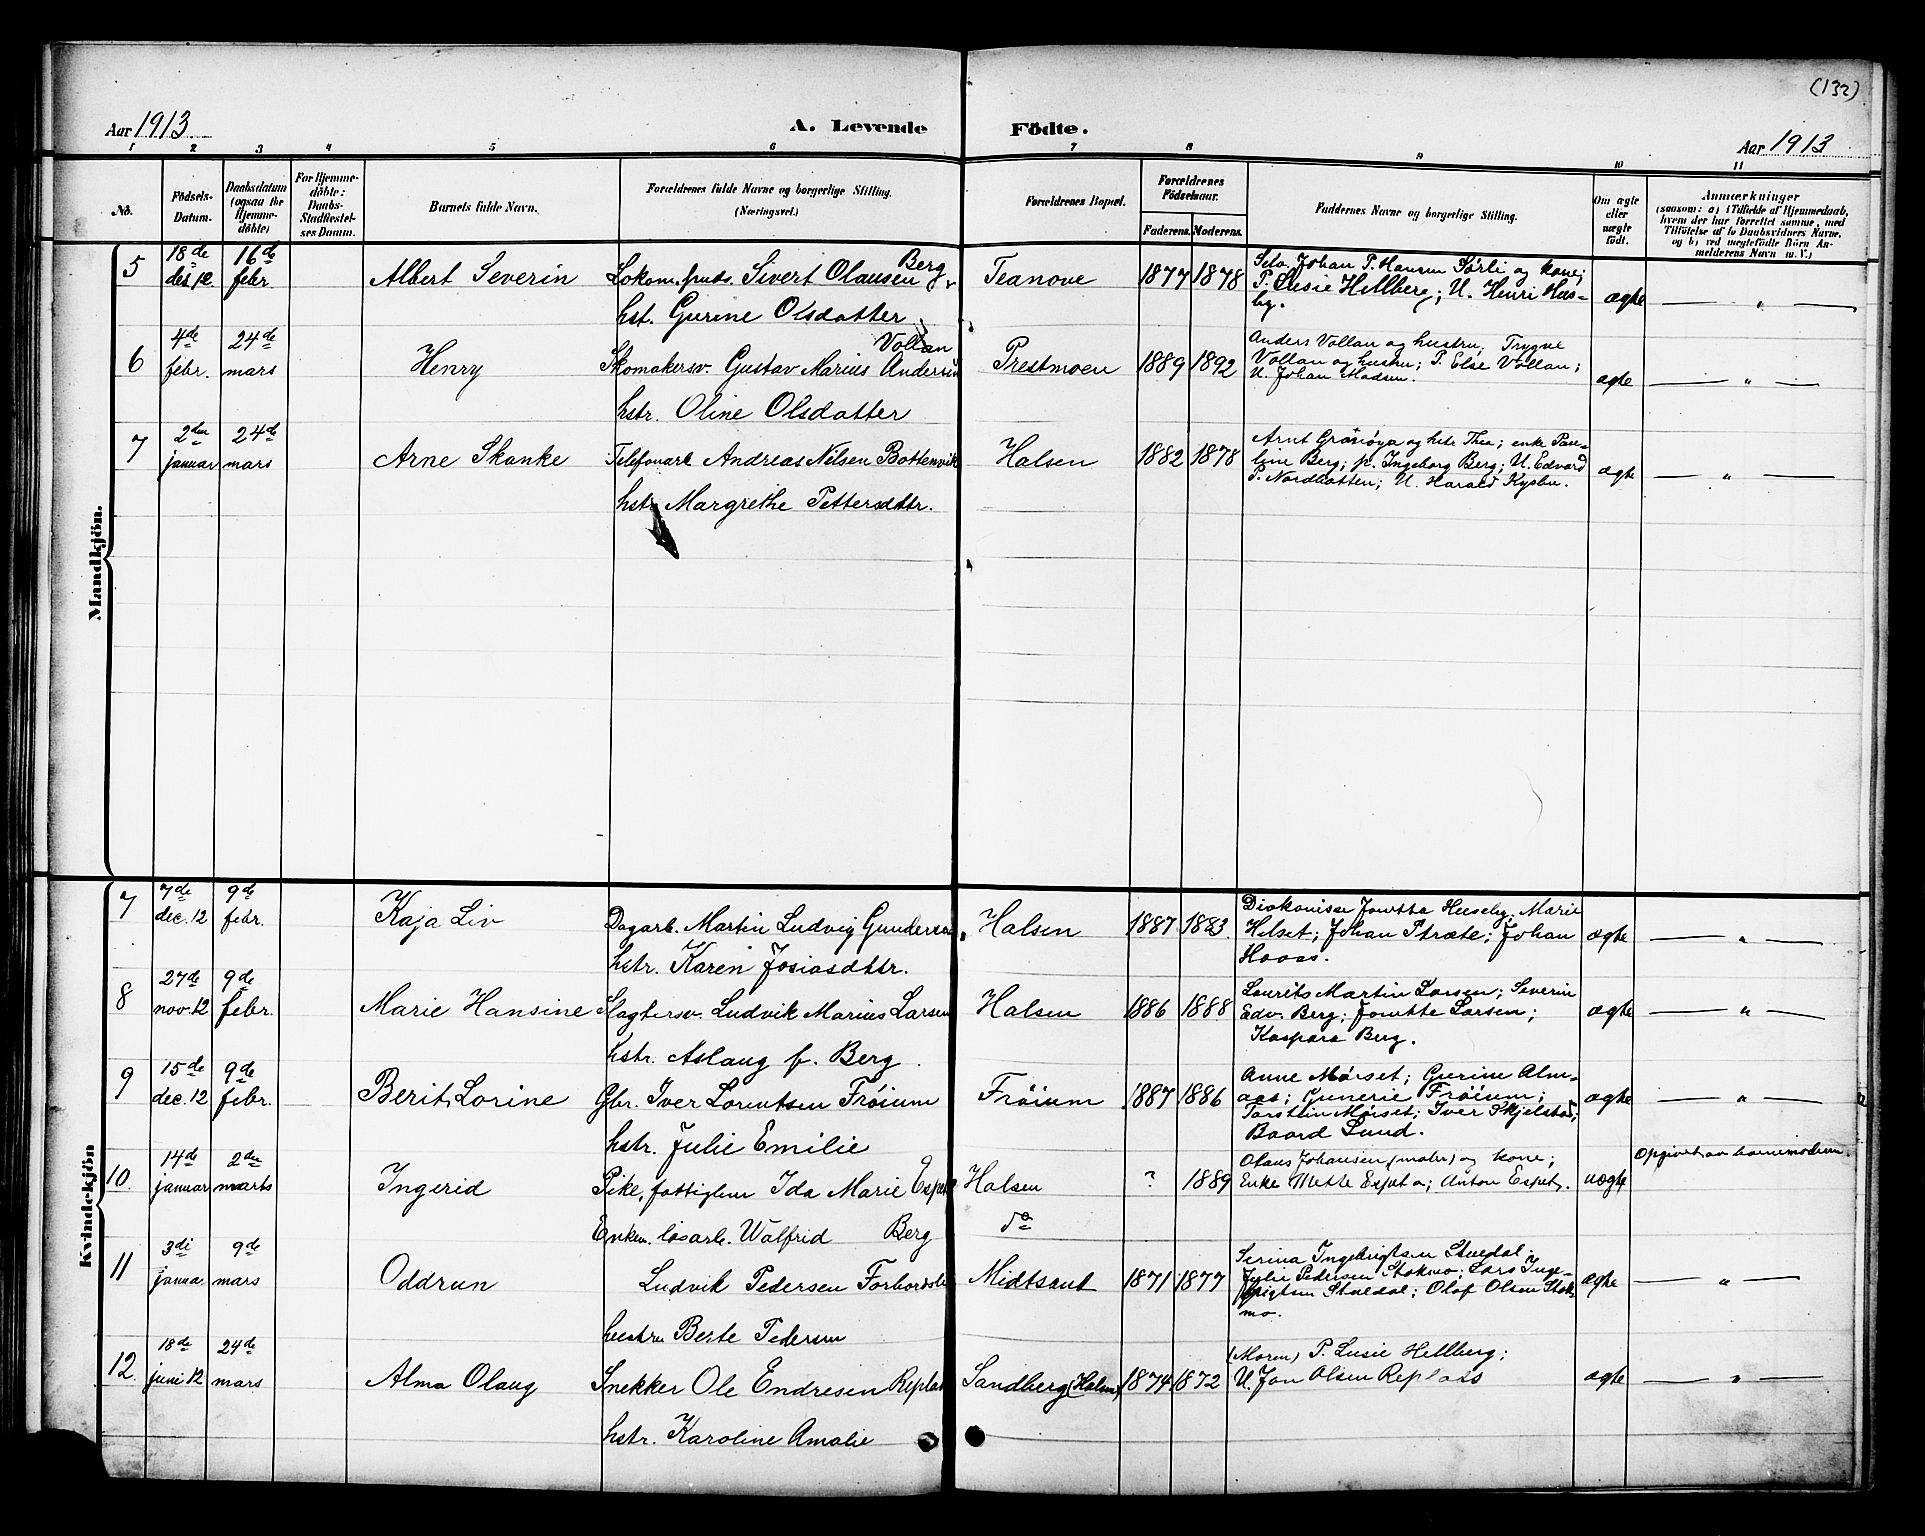 (132)
Aar 1913
A. Levende Födte.
Aar 1913
1 2 3 4 5 6 7 8 9 10 11
No.
Födsels-
Datum.
Daabsdatum
(ogsaa for
Hjemme-
döbte)
For Hjemme-
döbte:
Daabs-
Stadfæstel-
ses Datum.
Barnets fulde Navn.
Forældrenes fulde Navne og borgerlige Stilling.
(Næringsvei.)
Forældrenes Bopæl.
Forældrenes
Födselsaar.
Faderens. Moderens.
Faddernes Navne og borgerlige Stilling.
Om ægte
eller
uægte
födt.
Anmærkninger
(saasom: a) i Tilfælde af Hjemmedaab,
hvem der har forrettet samme, med
Tilföielse af to Daabsvidners Navne,
og b) ved uægtefödte Börn An-
melderens Navn m. V.)
Mandkjön.
5 18de des 12 16de febr Albert Severin Lokom.puds. Sivert Olausen Berg
hst. Gurine Olsdatter
Teanove 1877 1878
Selv, Johan P. Hansen Sörli og kone;
P. Susie Hellberg; U. Henri Hus-
by.
ægte "
6 4de febr. 24de mars Henry Skomakersv. Gustav Marius Andersen Vollan
hstr. Oline Olsdatter
Prestmoen 1889 1892
Anders Vollan og hustru, Trygve
Vollan og hustru; P. Else Vollan;
U. Johan Madsen.
ægte "
7 2den januar 24de mars Arne Skanke Telefonarb Andreas Nilsen Bottenvik
hstr. Margrethe Pettersdttr.
Halsen 1882 1878
Arnt Gränöya og Thea; enke Pau-
line Berg; p. Ingeborg Berg; U. Edvard
P. Nordhatten; U. Harald
ægte "
Kvindekjön
7 7de dec. 12 9de febr. Kaja Liv Dagarb. Martin Ludvig Gundersen
hstr. Karen Josiasdttr.
Halsen 1887 1883
Diakonisse Jonetta Huseby, Marie
Helset; Johan Stræte; Johan
Haaas.
ægte "
8 27de nov. 12 9de febr. Marie Hansine Slagtersv. Ludvik Marius Larsen
hstr. Aslaug f. Berg
Halsen 1886 1888
Laurits Martin Larsen; Severin
Edv. Berg; Larsen;
Kaspara Berg.
ægte "
9 15de dec. 12 9de febr. Berit Lorine Gbr. Iver Lorentsen Fröium
hstr. Julie Emilie
Fröium 1887 1886
Anne Mörset; Gurine Alm-
aas; Gunerie Fröium;
Torstein Mörset; Iver Skjelstad;
Baard Lund.
ægte "
10. 14de januar 2den marts Ingerid Pike, fattiglem Ida Marie Espet
Enkem. lösarb. Walfrid Berg
Halsen
do
? 1889
Olaus Johansen (maler) og kone;
Enke Mette Espet a; Anton Espet.
uægte Opgivet av barnemoderen.
11 3di januar 9de mars Oddrun Ludvik Pedersen Forbordsli
hustru Berte Pedersen
Midtsand 1871 1877
Serina Ingebrigtsen Stuedal;
Julie Pedersen Stokmo; Lars Inge-
brigtsen Stuedal; Olaf Olsen Stok-
mo.
ægte "
12. 18de juni 12 24de mars Alma Olaug Snekker Ole Endresen Replas
hstr. Karoline Amalie
Sandberg (Halsen) 1874 1872
(Moren) P. Susie Hellberg;
U. Jon Olsen Replass
ægte "